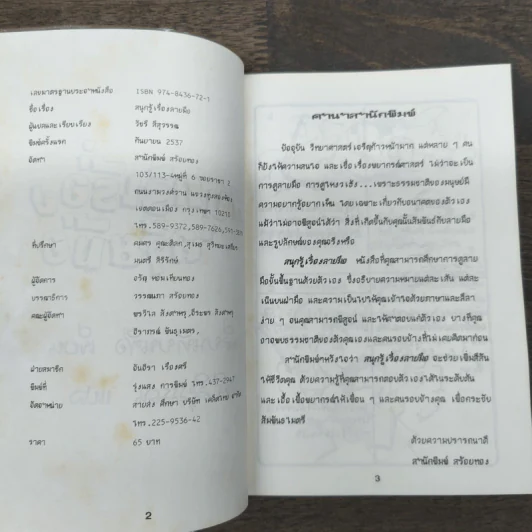 เลขมาตรฐานประจำหนังสือ ISBN 974-8436-72-1
ชื่อเรื่อง สนุกรู้เรื่องลายมือ
ผู้แปลและเรียบเรียง วัชรี สีสุวรรณ
พิมพ์ครั้งแรก กันยายน 2537
จัดทำ สำนักพิมพ์ สร้อยทอง
103/113-4หมู่ที่ 6 ซอยราชา 2
ถนนงามวงศ์วาน แขวงทุ่งสองห้อง
เขตดอนเมือง กรุงเทพฯ 10210
โทร.589-9372,589-7626,
ที่ปรึกษา
มนตรี ศิริรักษ์
ผู้จัดการ
บรรณาธิการ วรรณภา สร้อยทอง
คณะผู้จัดทำ
ฝ่ายสมาชิก อันธิรา เรืองศรี
พิมพ์ที่ รุ่งแสง การพิมพ์ โทร.437-2947
จัดจำหน่าย สายส่ง ศึกษา บริษัท เคล็ดไทย จำกัด
โทร.225-9536-42
ราคา 65 บาท
2
คำนำสำนักพิมพ์
ปัจจุบัน วิทยาศาสตร์เจริญก้าวหน้ามาก แต่หลาย ๆ คน
ก็ยังให้ความสนใจ และเชื่อเรื่องพยากรณ์ศาสตร์ ไม่ว่าจะเป็น
การดูลายมือ การดูโหงวเฮ้ง...เพราะธรรมชาติของมนุษย์มี
ความอยากรู้อยากเห็น โดยเฉพาะเกี่ยวกับอนาคตของตัวเอง
แม้ว่าไม่อาจพิสูจน์ได้ว่า สิ่งที่เกิดขึ้นกับคุณนั้นสัมพันธ์กับลายมือ
และรูปลักษณ์ของคุณจริงหรือ
สนุกรู้เรื่องลายมือ หนังสือที่คุณสามารถศึกษาการดูลาย
มือขั้นพื้นฐานด้วยตัวเอง ซึ่งอธิบายความหมายแต่ละเส้น แต่ละ
เนินบนฝ่ามือ และความเป็นไปให้คุณเข้าใจด้วยภาษาและลีลา
ง่าย ๆ จนคุณสามารถพิสูจน์ และให้คำตอบแก่ตัวเอง บางทีคุณ
อาจพบธรรมชาติของตัวคุณเองและคนรอบข้างที่ไม่เคยคิดมาก่อน
สำนักพิมพ์ฯหวังใจว่า สนุกรู้เรื่องลายมือ จะช่วยเพิ่มสีสัน
ให้ชีวิตคุณ ด้วยความรู้ที่คุณสามารถตอบตัวเองได้ในระดับต้น
และเอื้อเฟื้อพยากรณ์ให้เพื่อน ๆ และคนรอบข้างคุณ เพื่อกระชับ
สัมพันธไมตรี
ด้วยความปรารถนาดี
สำนักพิมพ์ สร้อยทอง
3